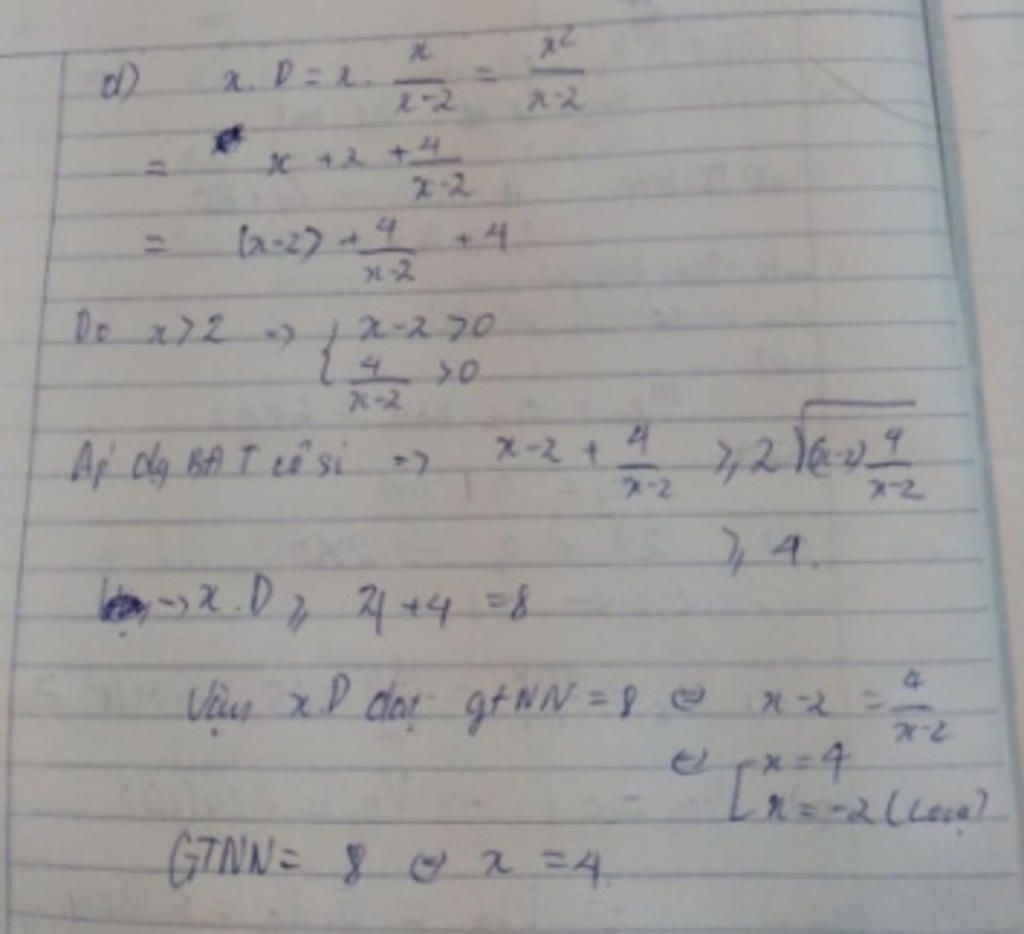 d) x.D = x. x/(x-2) = x²/(x-2)
= x + 2 + 4/(x-2)
= (x-2) + 4/(x-2) + 4
Do x>2 => { x-2 >0
4/(x-2) >0
Áp dg BĐT cô si => x-2 + 4/(x-2) ≥ 2√((x-2) 4/(x-2))
≥ 4.
-> x.D ≥ 4 + 4 = 8
Vậy x.D đạt gtNN = 8 <=> x-2 = 4/(x-2)
<=> [ x = 4
x = -2 (Loại)
GTNN = 8 <=> x = 4